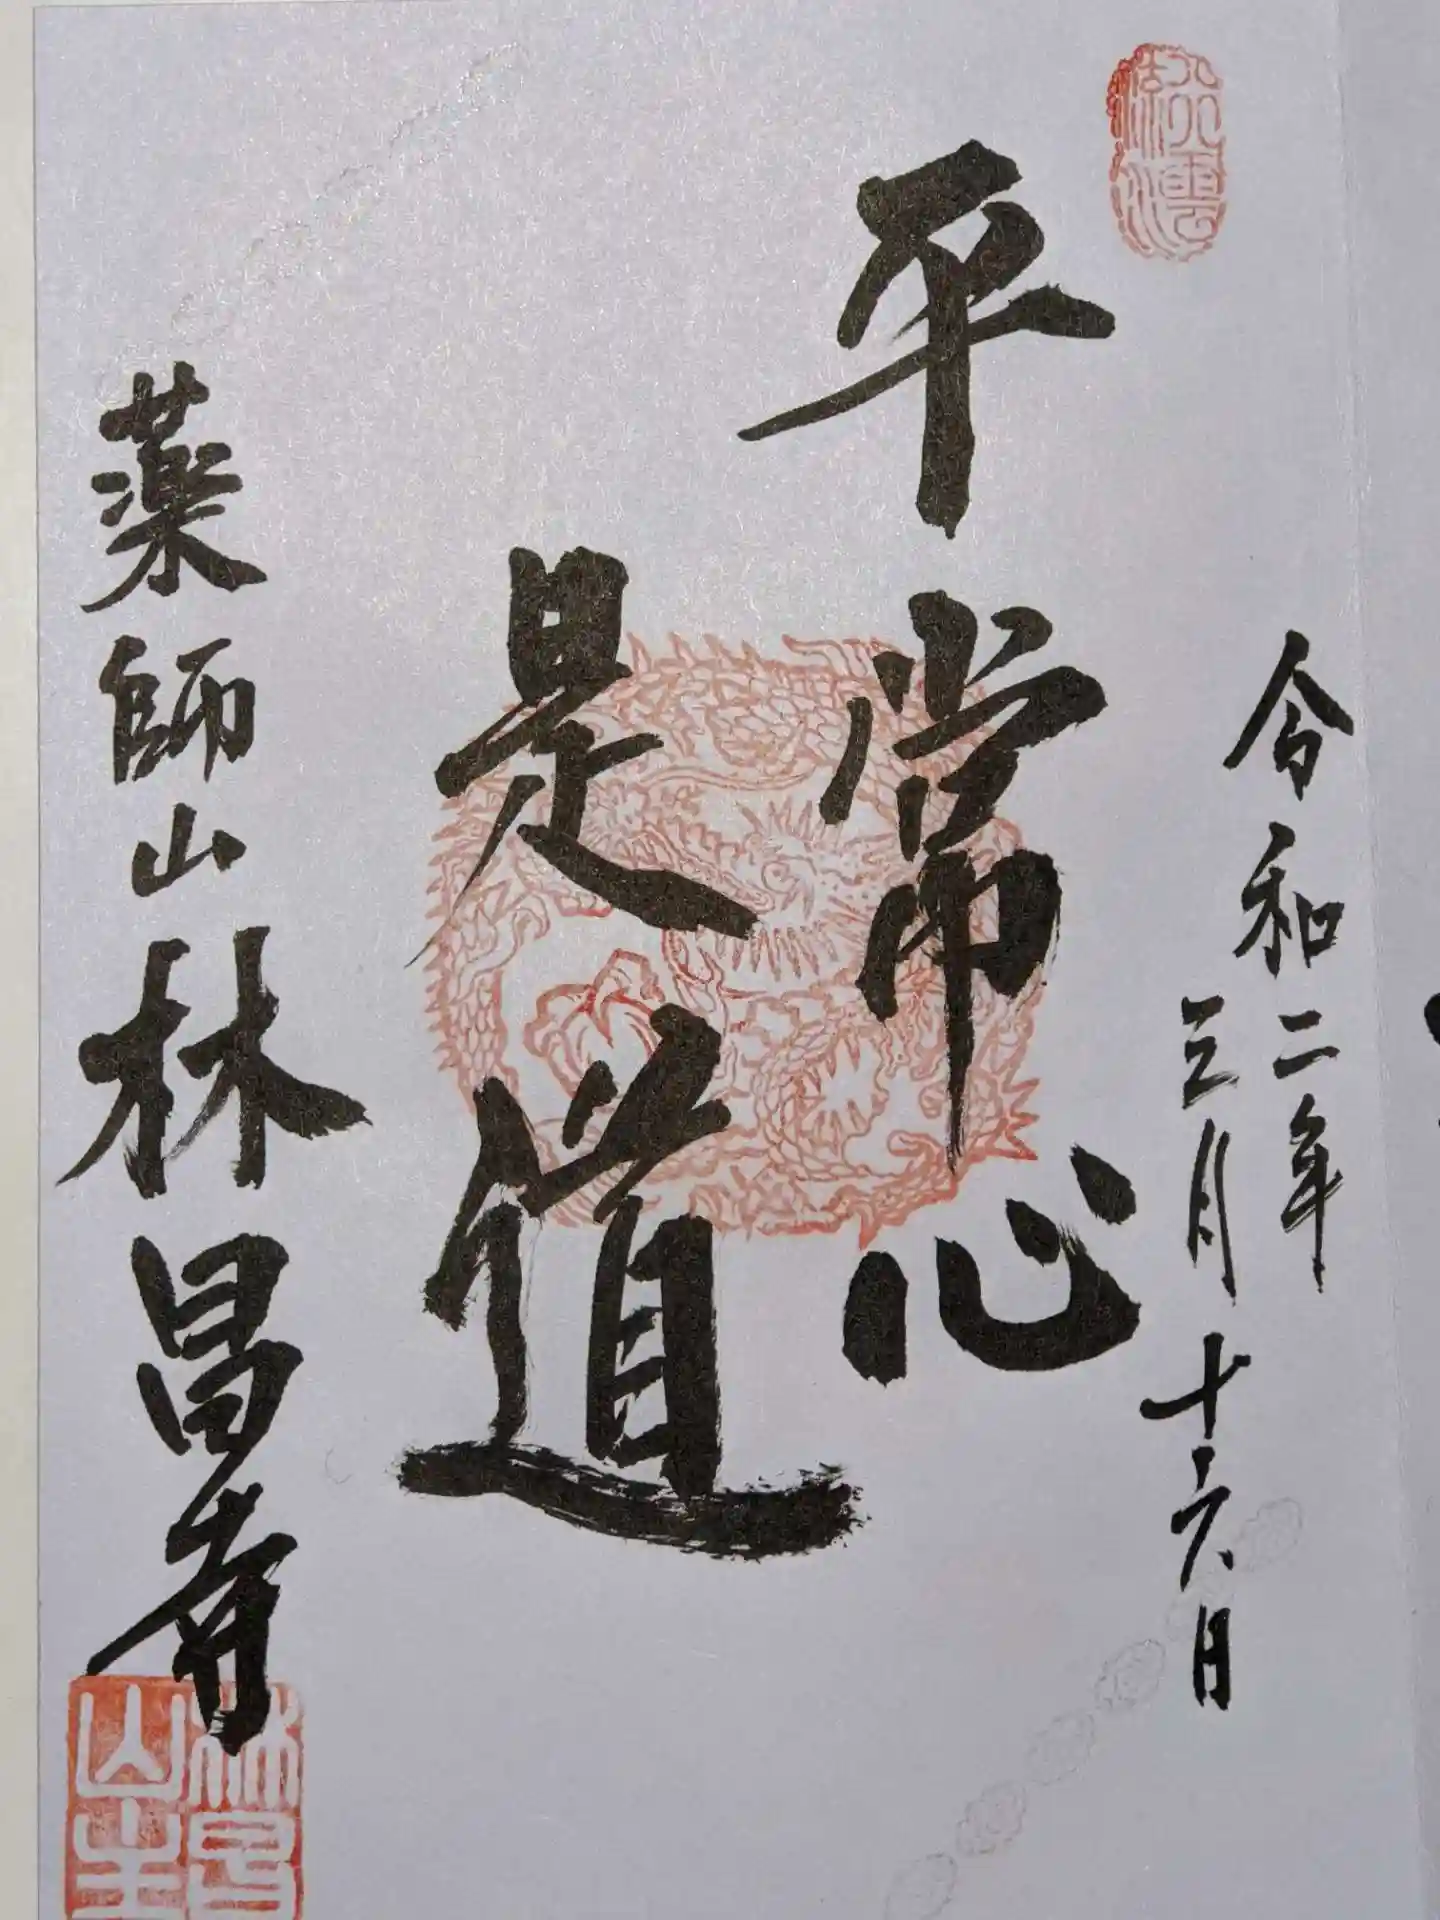 令和二年
三月十六日
平常心
是道
薬師山林昌寺